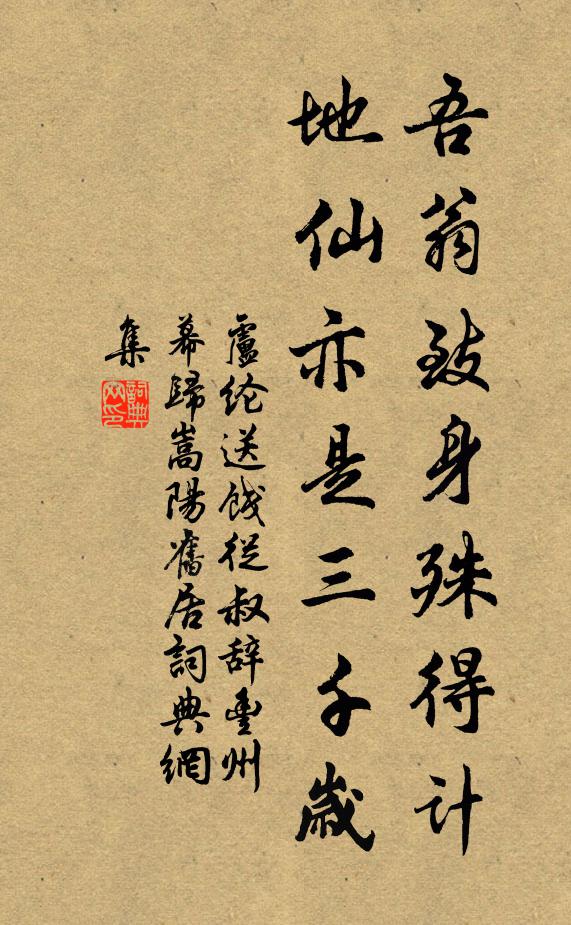 吾翁致身殊得计
地仙亦是三千岁
盧纶送饯從叔辞豊州
幕歸嵩陽舊居詞典網
集
詞典
网印